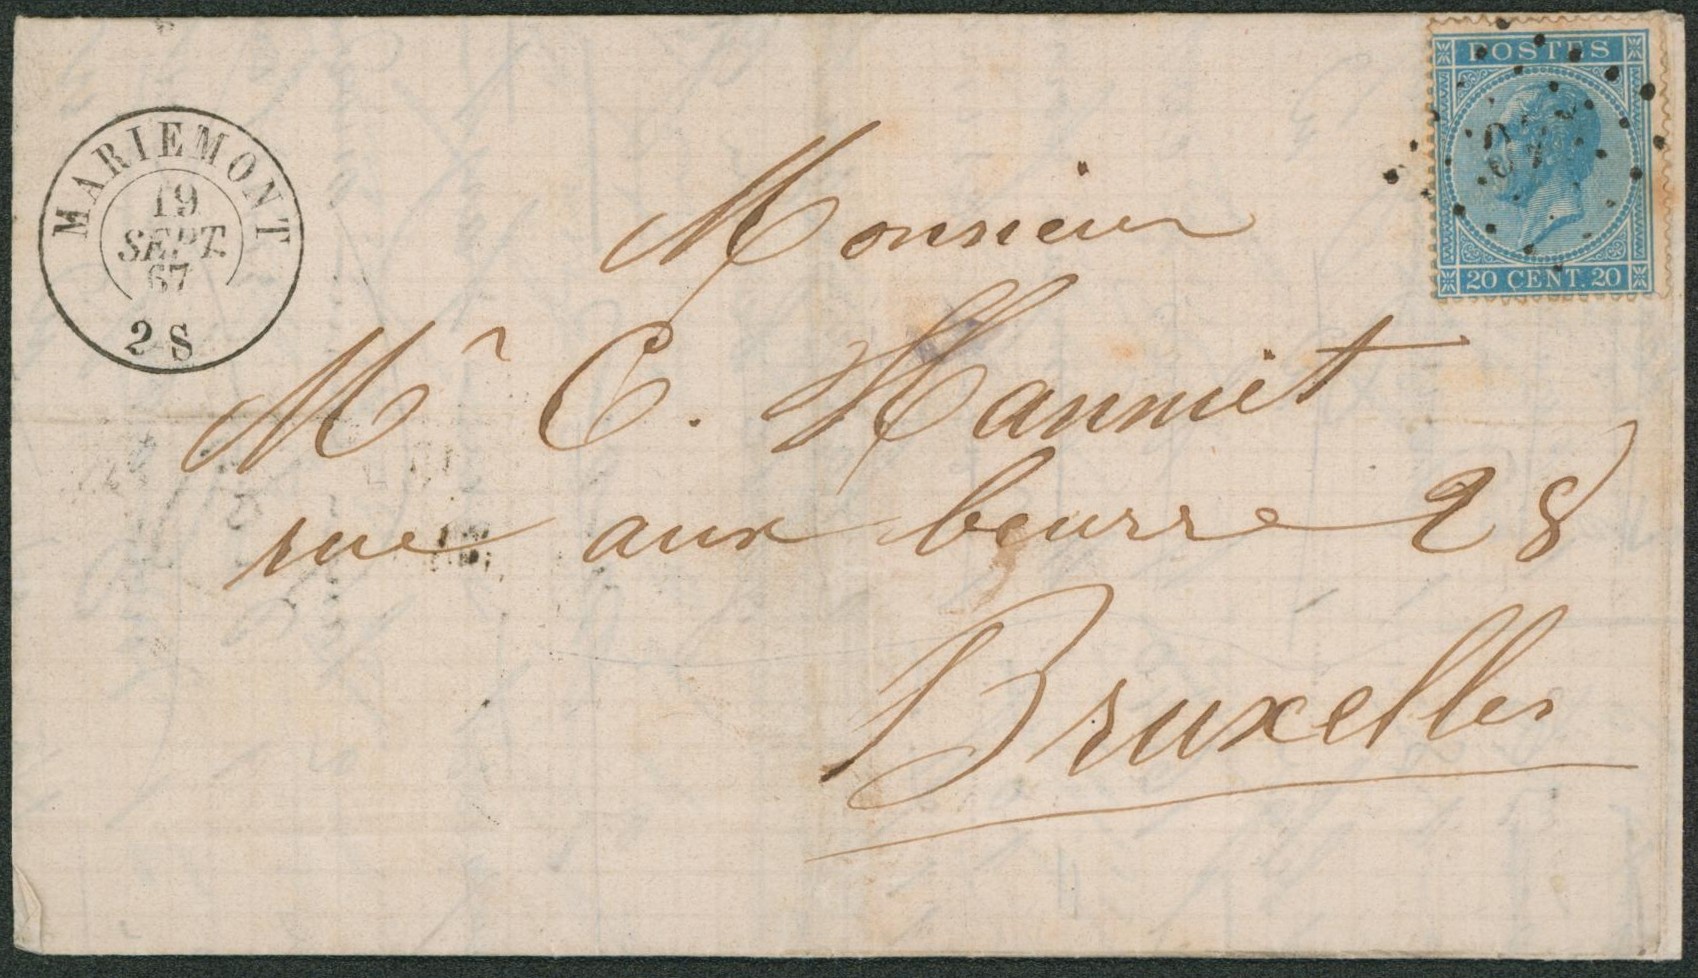 MARIEMONT
19
SEPT.
67
2 S
POSTES
20 CENT. 20
Monsieur
Mr C. Hanniet
rue aux beurre 28
Bruxelles